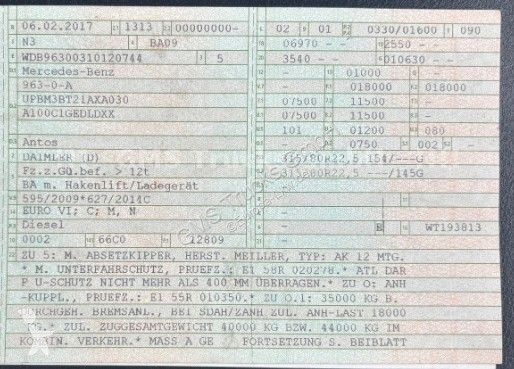 06.02.2017 1313 00000000-
N3 BA09
WDB96300310120744 5
Mercedes-Benz
963-0-A
UPBM3BT21AXA030
A100C1GEDLDXX
Antos
DAIMLER (D)
Fz.z.Gü.bef. > 12t
BA m. Hakenlift/Ladegerät
595/2009*627/2014C
EURO VI; C; M, N
Diesel
0002 66C0 12809
02 01 0330/01600 090
06970 - - 2550 - -
3540 - - 010630 - -
- 01000 -
- 018000 018000
07500 11500 -
07500 11500 -
101 01200 080
- 0750 002 -
315/80R22,5 154/---G
315/80R22,5 ---/145G
-
-
- E WT193813
ZU 5: M. ABSETZKIPPER, HERST. MEILLER, TYP: AK 12 MTG.
* M. UNTERFAHRSCHUTZ, PRUEFZ.: E1 58R 020278.* ATL DAR
P U-SCHUTZ NICHT MEHR ALS 400 MM ÜBERRAGEN.* ZU O: ANH
-KUPPL., PRUEFZ.: E1 55R 010350.* ZU O.1: 35000 KG B.
DURCHGEH. BREMSANL., BEI SDAH/ZANH ZUL. ANH-LAST 18000
KG.* ZUL. ZUGGESAMTGEWICHT 40000 KG BZW. 44000 KG IM
KOMBIN. VERKEHR.* MASS A GE FORTSETZUNG S. BEIBLATT